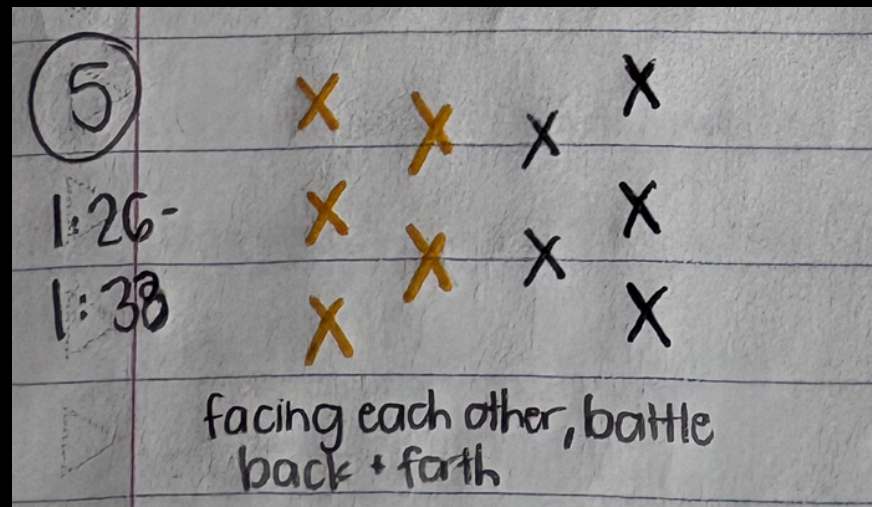 5
1:26-
1:38
X X X X
X X X X
X X
facing each other, battle
back + forth